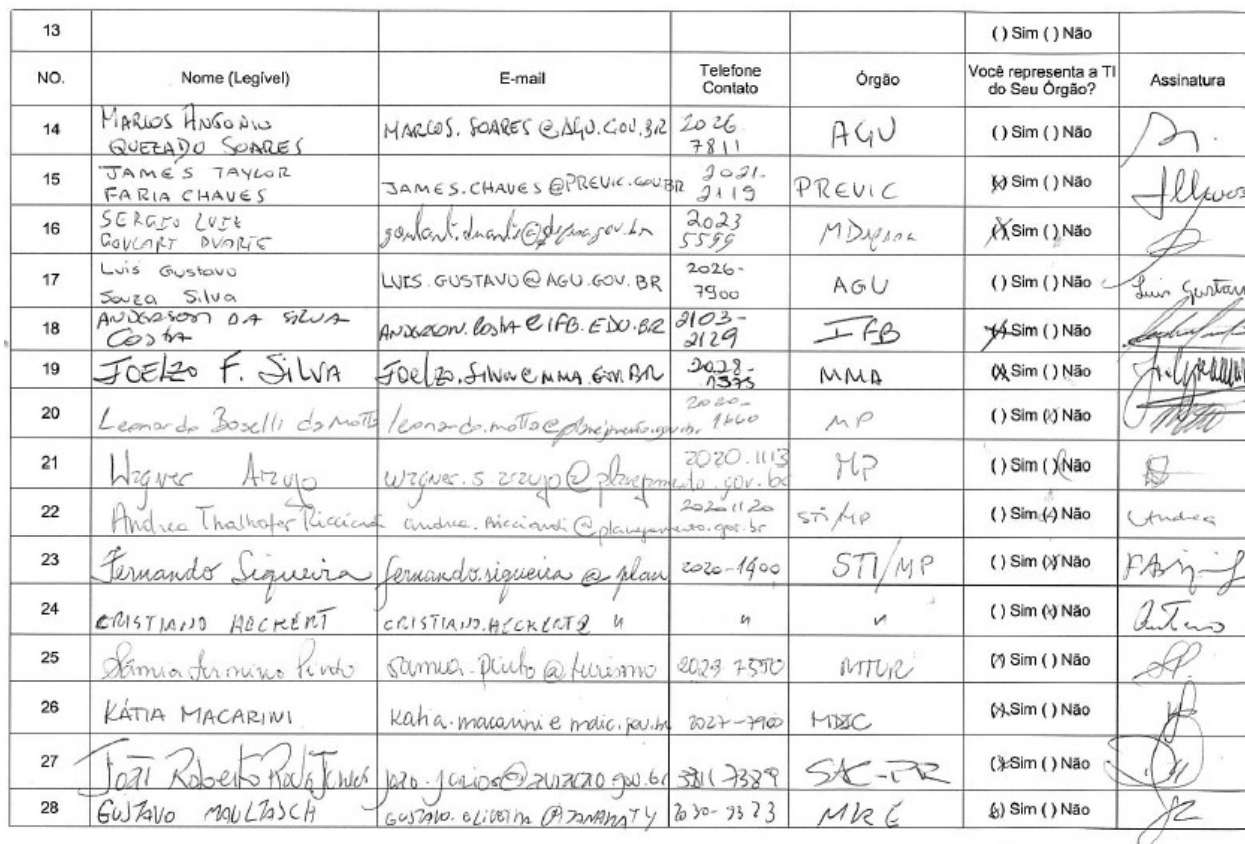 13 ( ) Sim ( ) Não
NO. Nome (Legível) E-mail Telefone Contato Órgão Você representa a TI do Seu Órgão? Assinatura
14 MARCOS ANTONIO QUEZADO SOARES MARCOS.SOARES@AGU.GOV.BR 2026 7811 AGU ( ) Sim ( ) Não
15 JAMES TAYLOR FARIA CHAVES JAMES.CHAVES@PREVIC.GOV.BR 2021-2119 PREVIC (x) Sim ( ) Não
16 SERGIO LUIZ GOULART DUARTE goulart.duarte@defesa.gov.br 2023 5599 MDefesa (X) Sim ( ) Não
17 Luis Gustavo Souza Silva LUIS.GUSTAVO@AGU.GOV.BR 2026-7900 AGU ( ) Sim ( ) Não Luis Gustavo
18 ANDERSON DA SILVA COSTA ANDERSON.COSTA@IFB.EDU.BR 2103-2129 IFB (X) Sim ( ) Não
19 JOELZO F. SILVA JOELZO.SILVA@MMA.GOV.BR 2028- MMA (X) Sim ( ) Não
20 Leonardo Boselli da Motta leonardo.motta@planejamento.gov.br 2020-1660 MP ( ) Sim (x) Não
21 Wagner Araujo wagner.s.araujo@planejamento.gov.br 2020.1113 MP ( ) Sim (X) Não
22 Andrea Thalhofer Ricciardi andrea.ricciardi@planejamento.gov.br 2020 1120 STI/MP ( ) Sim (x) Não Andrea
23 Fernando Siqueira fernando.siqueira@plan 2020-1400 STI/MP ( ) Sim (X) Não
24 CRISTIANO HECKERT CRISTIANO.HECKERT@ " " " ( ) Sim (x) Não
25 Sâmia Pinto samia.pinto@turismo 2023 7550 MTUR (x) Sim ( ) Não
26 KÁTIA MACARINI katia.macarini@mdic.gov.br 2027-7900 MDIC (x) Sim ( ) Não
27 João Roberto joao.junior@aviacao.gov.br 3311 7389 SAC-PR (x) Sim ( ) Não
28 GUSTAVO MAULTASCH GUSTAVO.OLIVEIRA@ITAMARATY 2030-9323 MRE (x) Sim ( ) Não